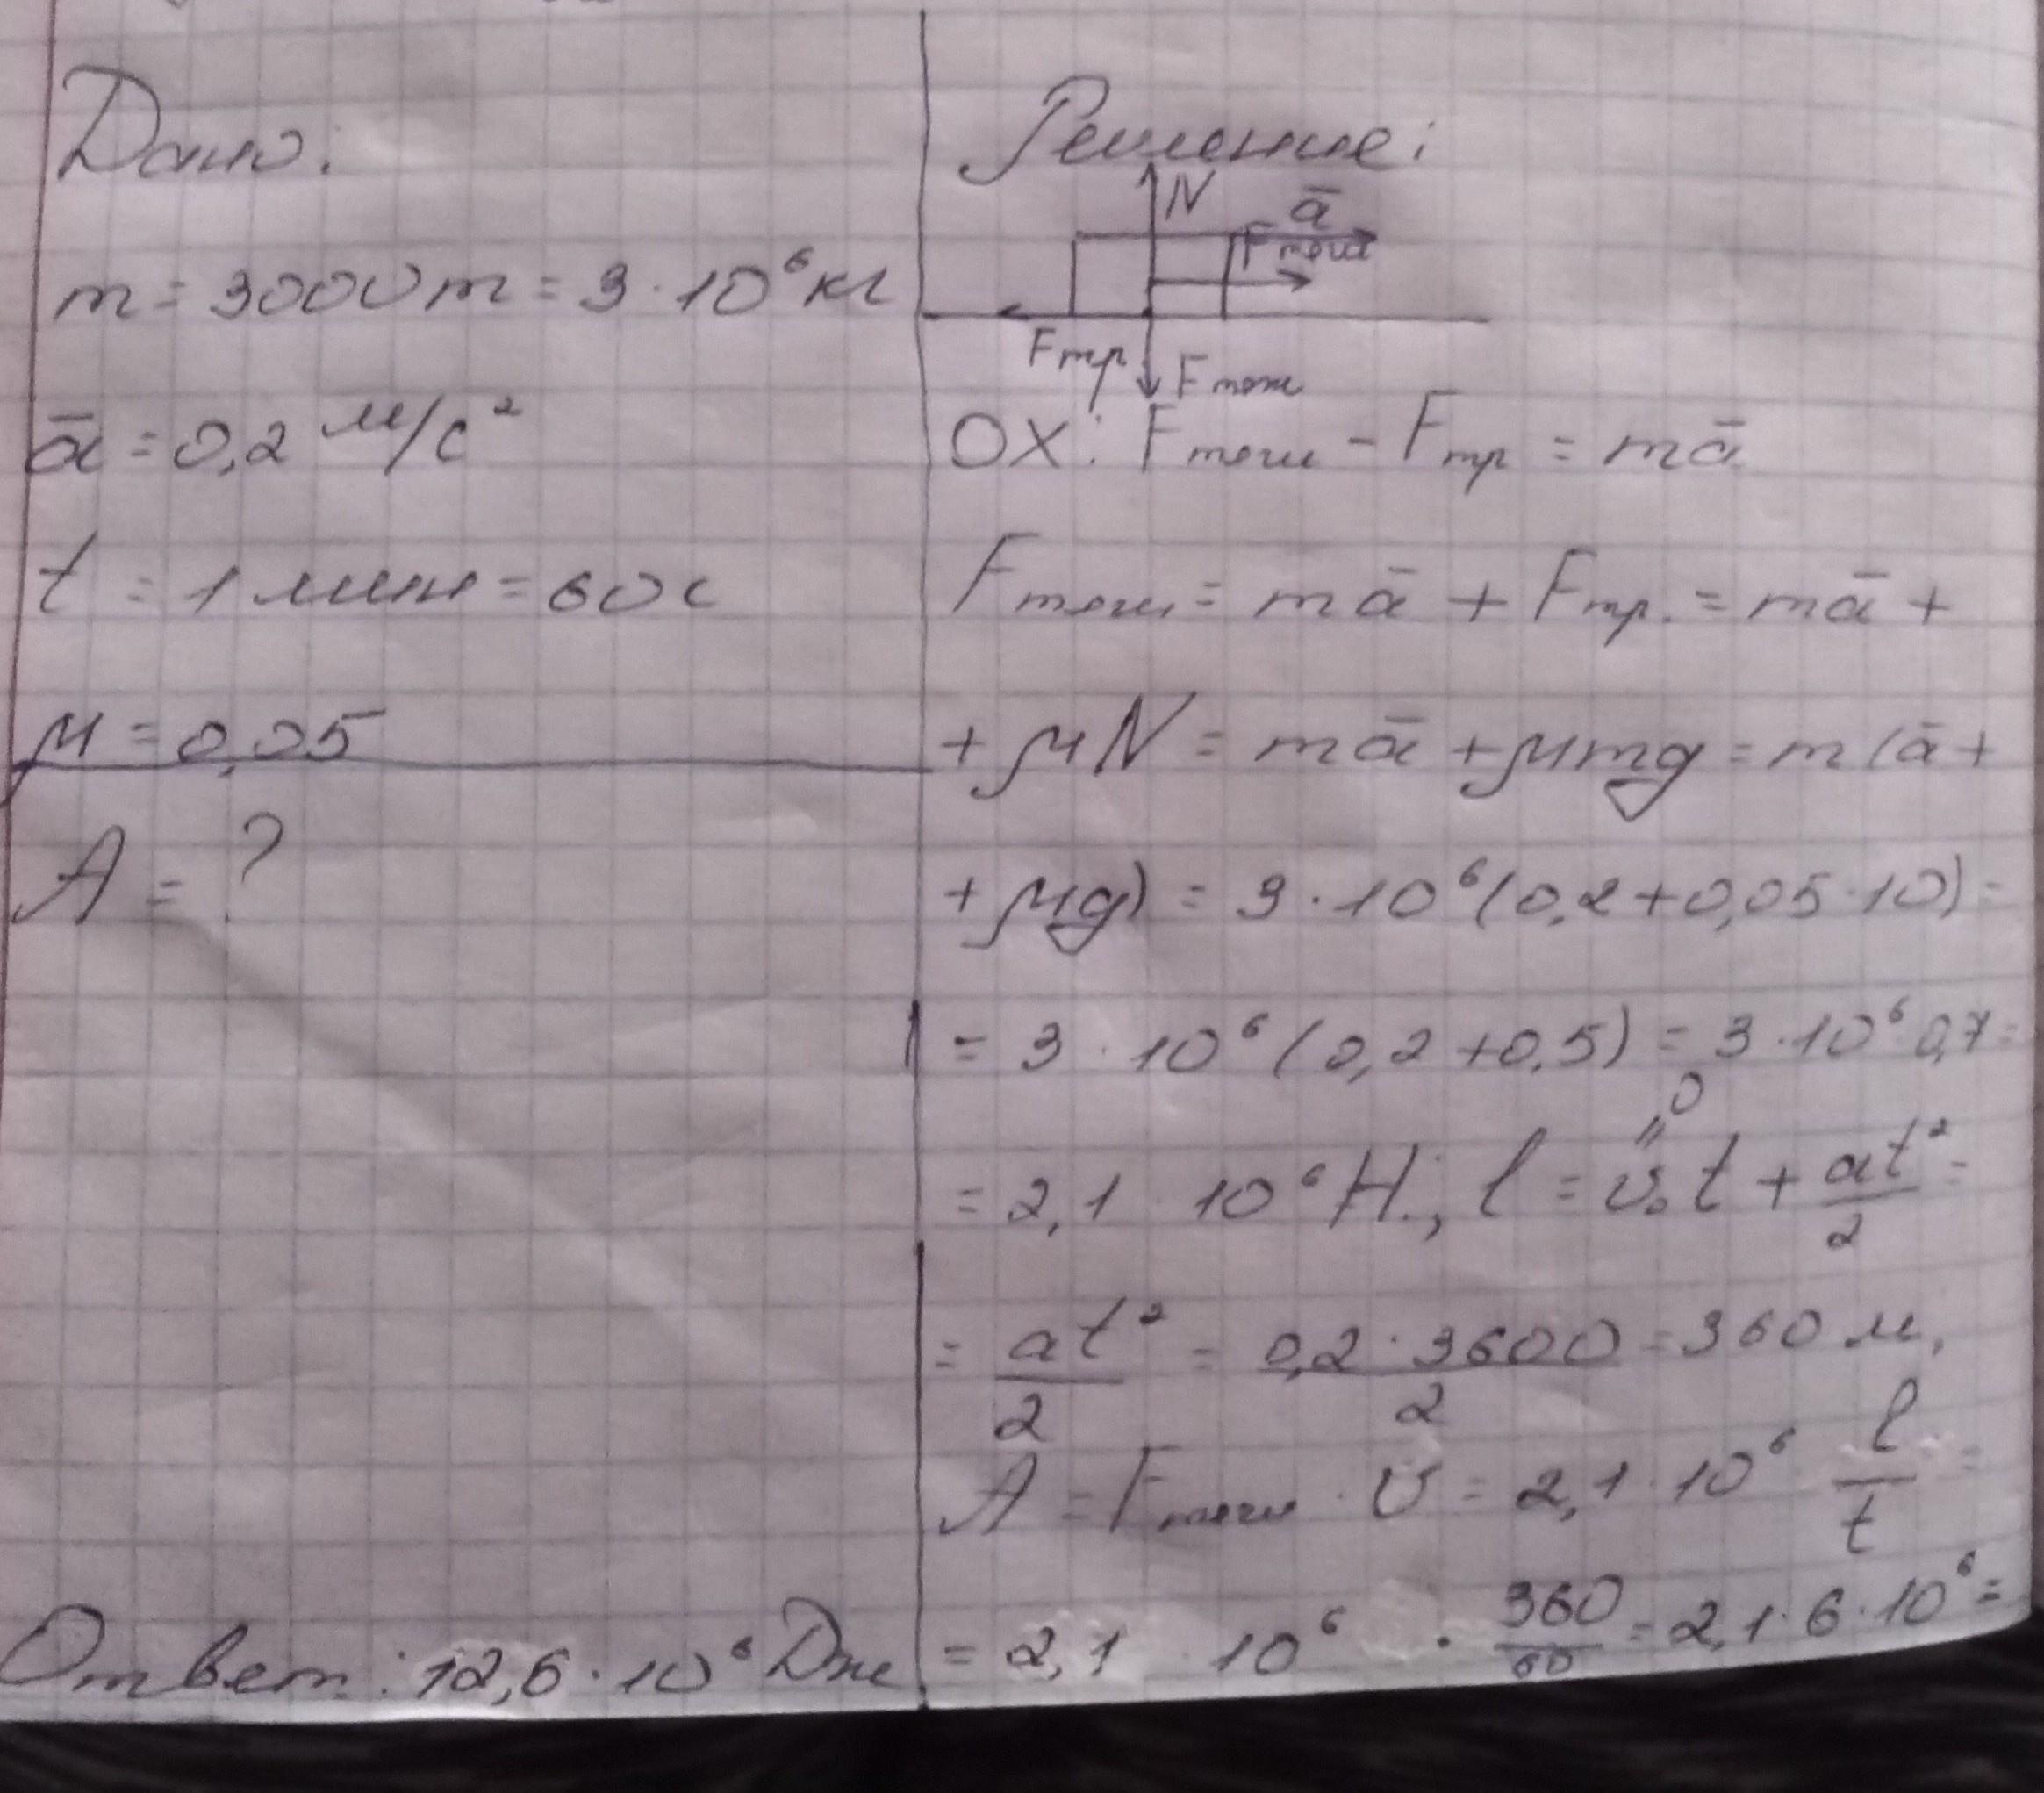 Дано:
m = 3000 т = 3 · 10⁶ кг
a̅ = 0,2 м/с²
t = 1 мин = 60 с
μ = 0,05
A = ?
Ответ: 12,6 · 10⁶ Дж
Решение:
N
a̅
Fтяги
Fтр
Fтяж
OX: Fтяги - Fтр = ma̅
Fтяги = ma̅ + Fтр. = ma̅ +
+ μN = ma̅ + μmg = m(a̅ +
+ μg) = 3 · 10⁶(0,2 + 0,05 · 10) =
= 3 · 10⁶(0,2 + 0,5) = 3 · 10⁶ · 0,7 =
0
"
= 2,1 · 10⁶ Н; l = v₀t + at²/2 =
= at²/2 = 0,2 · 3600/2 = 360 м,
A = Fтяги · v = 2,1 · 10⁶ l/t =
= 2,1 10⁶ · 360/60 = 2,1 · 6 · 10⁶ =